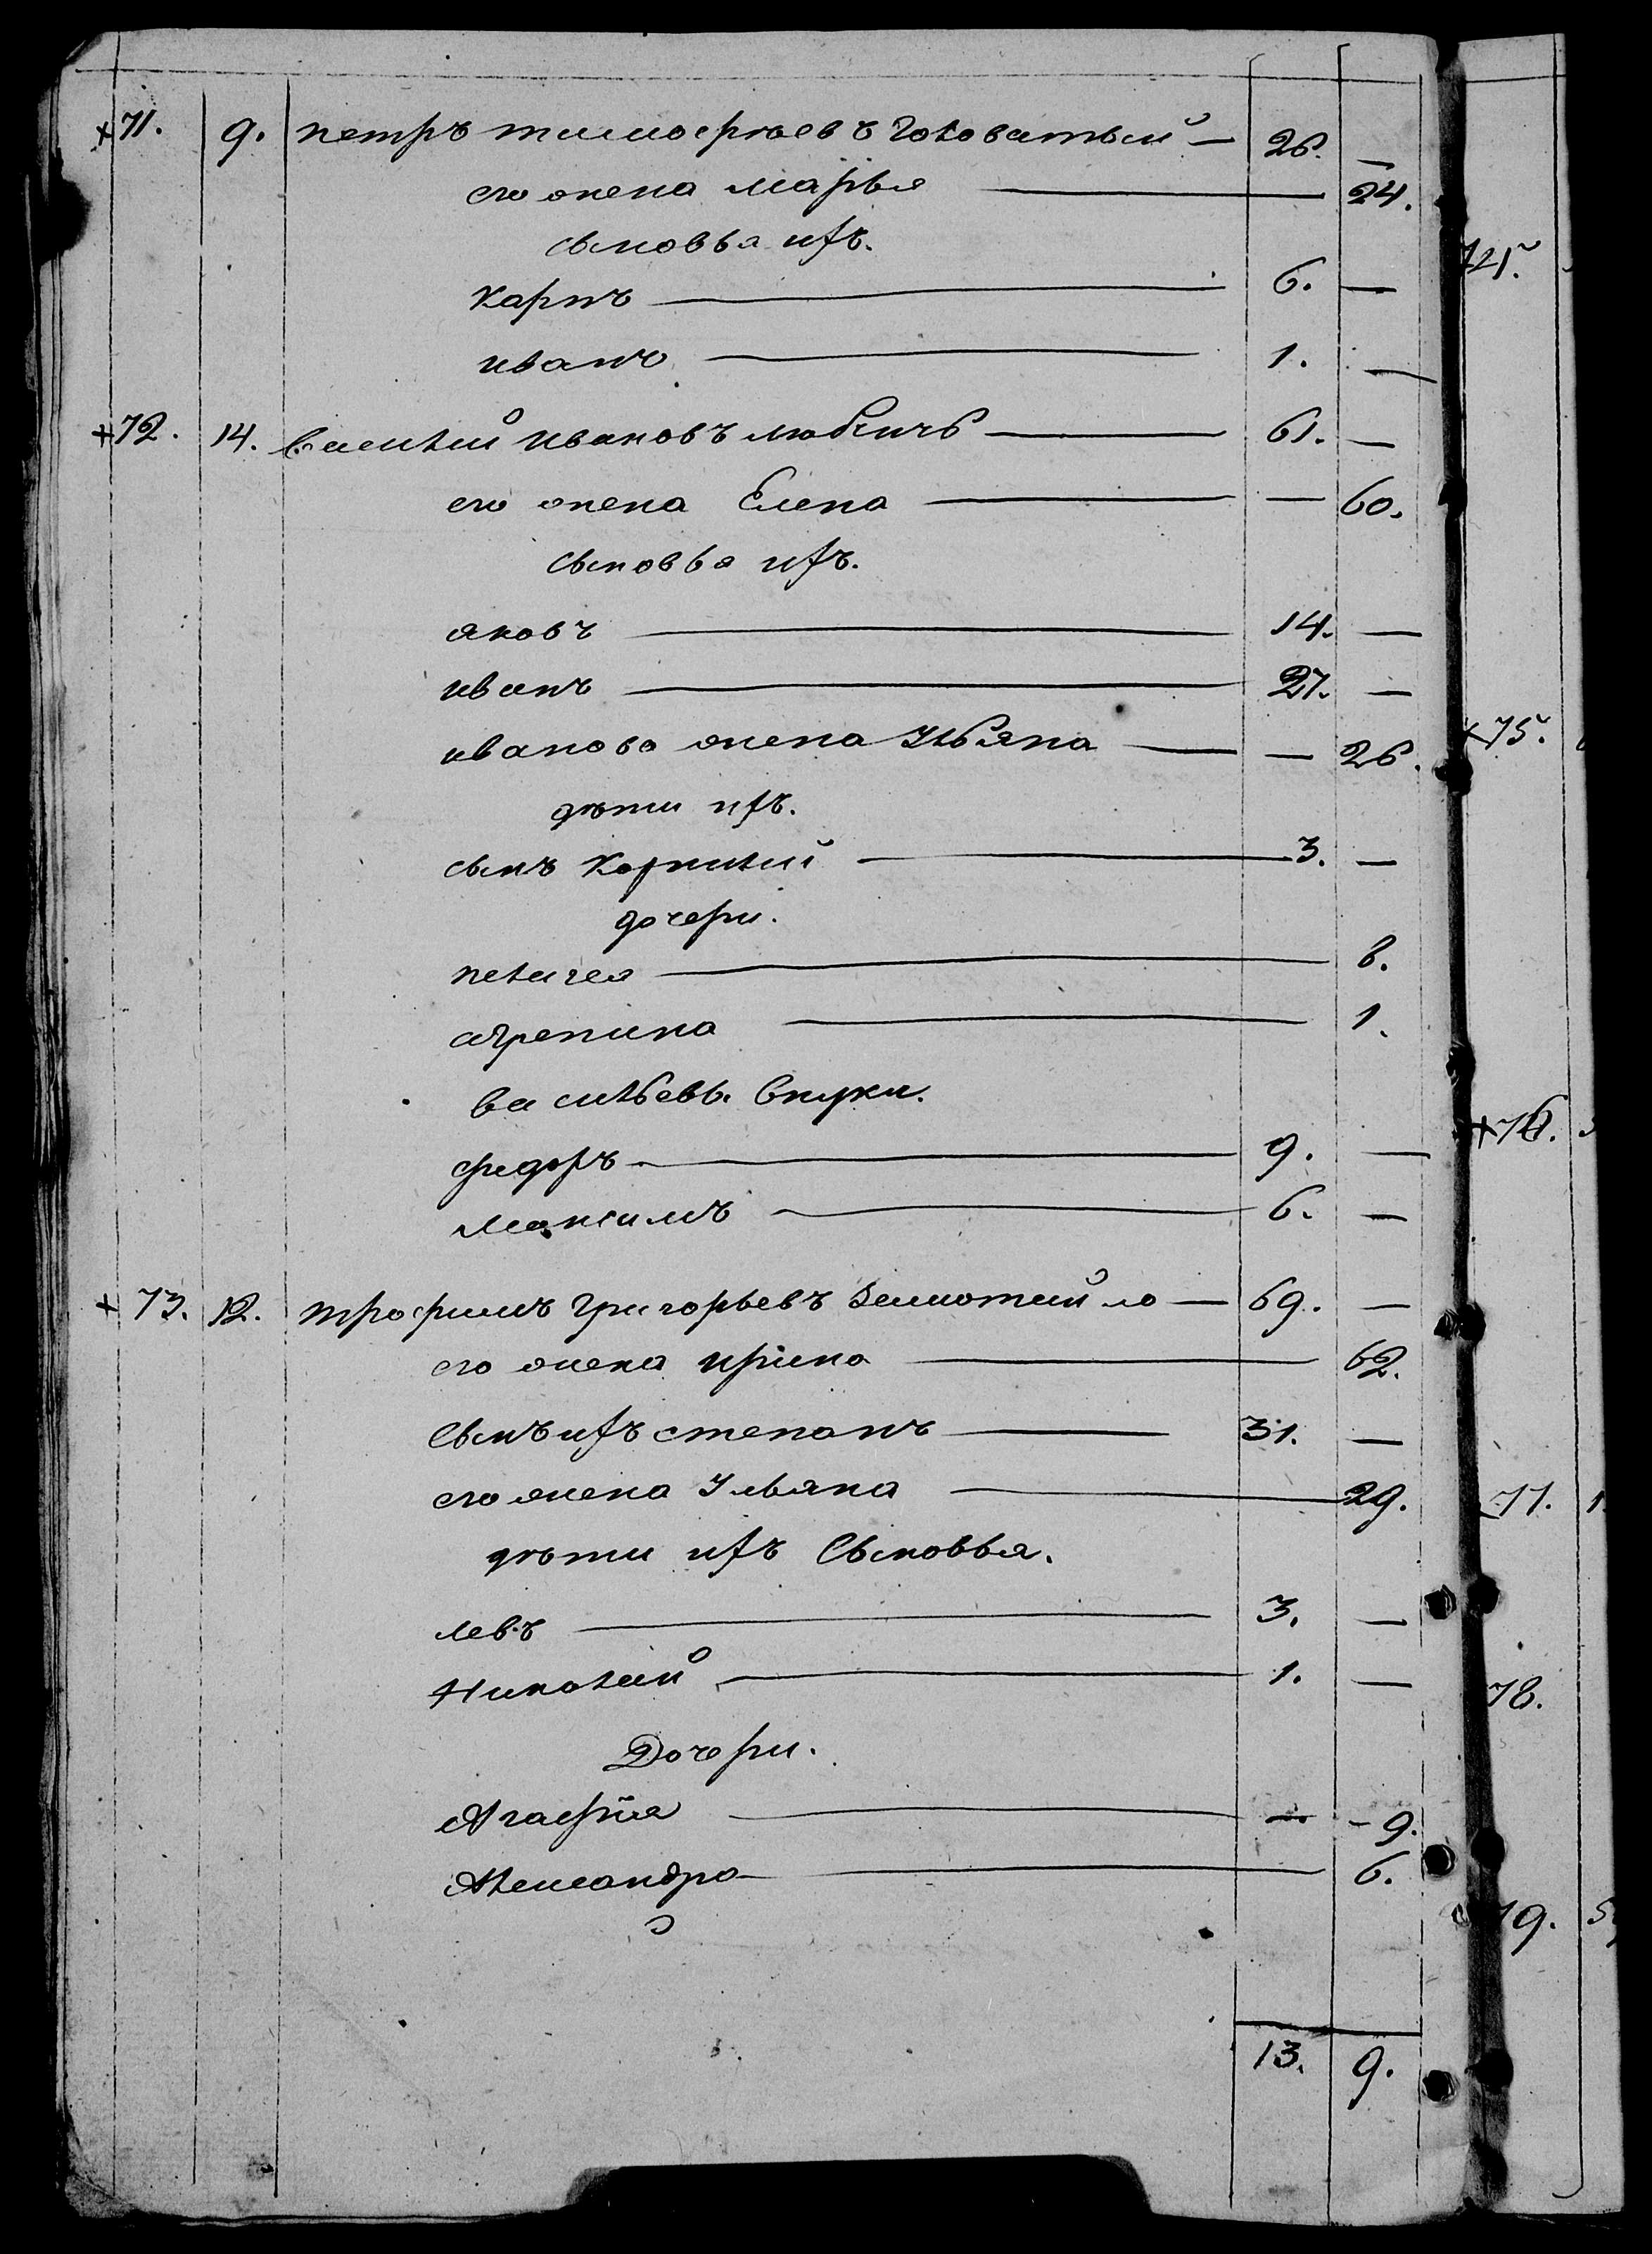 + 71. 9. петръ тимоѳѣевъ головатый — 26. —
его жена марья — 24.
сыновья ихъ.
карпъ — 6. —
иванъ — 1. —
+ 72. 14. василий ивановъ — 61. —
его жена Елена — — 60.
сыновья ихъ.
яковъ — 14. —
иванъ — 27. —
иванова жена Ульяна — — 26.
дѣти ихъ.
сынъ Корнилий — 3. —
дочери.
пелагея — 8.
агрепина — 1.
васильевы внуки.
федоръ — 9. —
максимъ — 6. —
+ 73. 12. трофимъ григорьевъ — 69. —
его жена ирина — 62.
сынъ ихъ степанъ — 31. —
его жена Ульяна — 29.
дѣти ихъ Сыновья.
левъ — 3. —
Николай — 1. —
Дочери.
Агафия — — - 9.
Александра — 6.
13. 9.
721.
+ 75.
+ 76.
77. 1
78.
79. 5